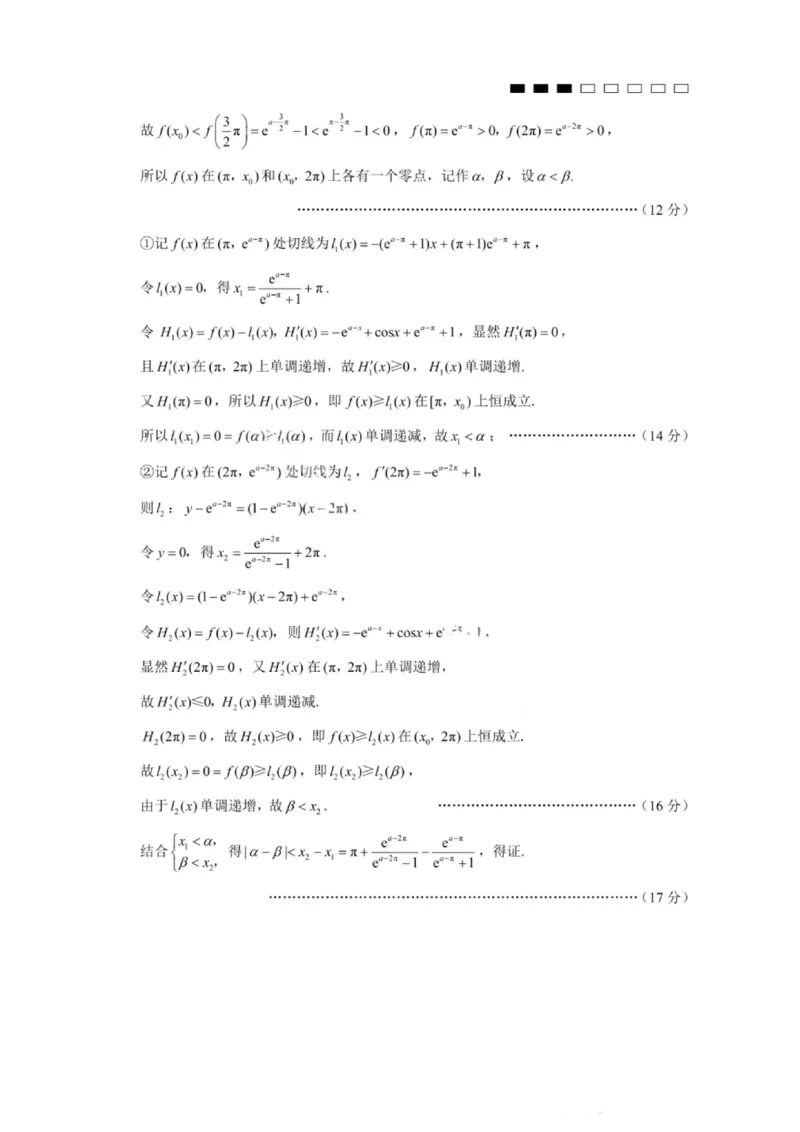 故 f(x₀)<f(3/2 π)=e^(a-3/2 π)-1<e^(π-3/2 π)-1<0，f(π)=e^(a-π)>0，f(2π)=e^(a-2π)>0，
所以 f(x)在(π，x₀)和(x₀，2π)上各有一个零点，记作α，β，设α<β.
……………………………………………………………………（12 分）
①记 f(x)在(π，e^(a-π))处切线为l₁(x)=-(e^(a-π)+1)x+(π+1)e^(a-π)+π，
令l₁(x)=0，得x₁=e^(a-π)/(e^(a-π)+1)+π.
令 H₁(x)=f(x)-l₁(x)，H₁′(x)=-e^(a-x)+cosx+e^(a-π)+1，显然H₁′(π)=0，
且H₁′(x)在(π，2π)上单调递增，故H₁′(x)≥0，H₁(x)单调递增.
又H₁(π)=0，所以H₁(x)≥0，即 f(x)≥l₁(x)在[π，x₀)上恒成立.
所以l₁(x₁)=0=f(α)≥l₁(α)，而l₁(x)单调递减，故x₁<α； ………………………（14 分）
②记 f(x)在(2π，e^(a-2π))处切线为l₂，f′(2π)=-e^(a-2π)+1，
则l₂：y-e^(a-2π)=(1-e^(a-2π))(x-2π)，
令y=0，得x₂=e^(a-2π)/(e^(a-2π)-1)+2π.
令l₂(x)=(1-e^(a-2π))(x-2π)+e^(a-2π)，
令H₂(x)=f(x)-l₂(x)，则H₂′(x)=-e^(a-x)+cosx+e^(a-2π)-1.
显然H₂′(2π)=0，又H₂′(x)在(π，2π)上单调递增，
故H₂′(x)≤0，H₂(x)单调递减.
H₂(2π)=0，故H₂(x)≥0，即 f(x)≥l₂(x)在(x₀，2π)上恒成立.
故l₂(x₂)=0=f(β)≥l₂(β)，即l₂(x₂)≥l₂(β)，
由于l₂(x)单调递增，故β<x₂. ……………………………………（16 分）
结合{x₁<α，β<x₂，得|α-β|<x₂-x₁=π+e^(a-2π)/(e^(a-2π)-1)-e^(a-π)/(e^(a-π)+1)，得证.
………………………………………………………………………（17 分）